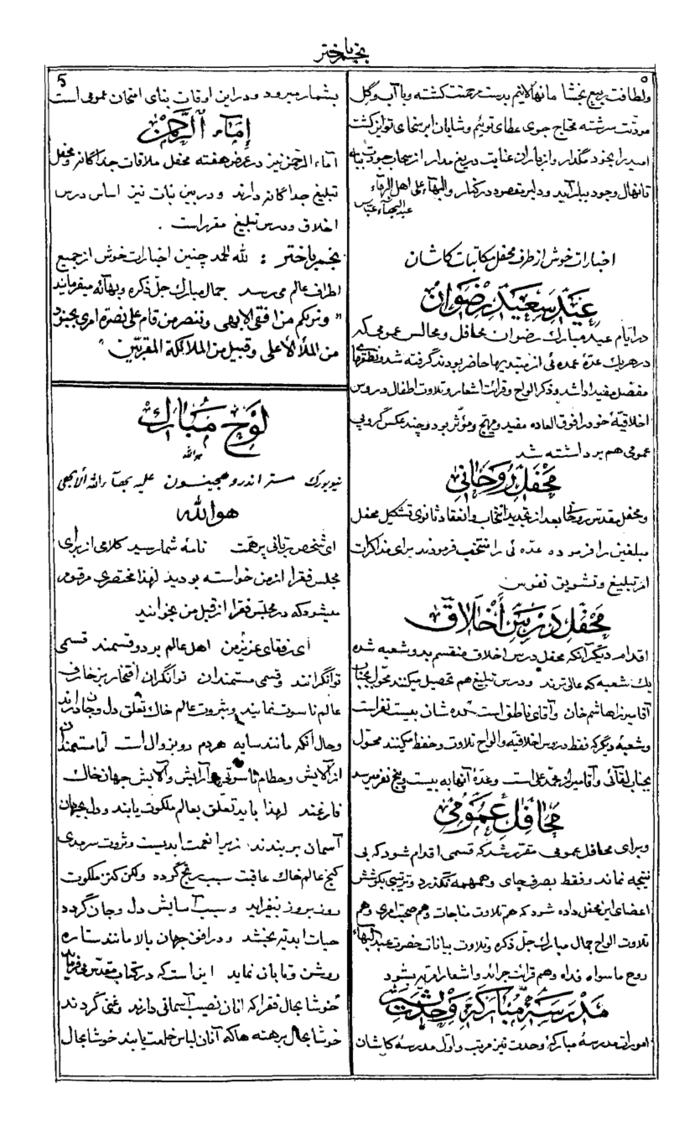 نجم باختر
۵
ولطافت ربیع بخشا مانهالانیم بدست رحمتت کشته و با آب و گل
مودّتت سرشته محتاج جوی عطای توئیم و شایان ابر سخای تو از کشت
امید را بخود مگذار و از باران عنایت دریغ مدار از سحاب جودت بیار
تا نهال وجود ببار آید و دلبر مقصود در کنار والبهاء علی اهل البهاء
عبدالبهاء عباس
اخبارات خوش از طرف محفل مکاتبات کاشان
عید سعید رضوان
در ایام عید مبارک رضوان محافل و مجالس عمومی که
در هریک عدّهٔ عمده ئی از مبتدیها حاضر بودند گرفته شد و نطقهای
مفصل مفید ادا شد و ذکر الواح و قرائت اشعار و تلاوت اطفال دروس
اخلاقیهٔ خود را فوق العاده مفید و مهیّج و مؤثر بود و چند عکس گروپی
عمومی هم برداشته شد
محفل روحانی
و محفل مقدس روحانی بعد از تجدید انتخاب و انعقاد ثانوی تشکیل محفل
مبلغین را فرموده عده ئی را منتخب فرمودند برای مذاکرات
امر تبلیغ و تشویق نفوس
محفل درس اخلاق
اقدام دیگر آنکه محفل درس اخلاق منقسم بدو شعبه شده
یک شعبه که عالی ترند و درس تبلیغ هم تحصیل میکنند محوّل بجناب
آقا میرزا هاشم خان و آقای ناطق است عده شان بیست نفر است
و شعبهٔ دیگر که فقط دروس اخلاقیه و الواح تلاوت و حفظ میکنند محوّل
بجناب لقائی و آقا میرزا محمد علی است و عدّهٔ آنها به بیست و پنج نفر میرسد
محافل عمومی
و برای محافل عمومی مقرر شد که قسمی اقدام شود که بی
نتیجه نماند و فقط بصرف چای و همهمه نگذرد و ترتیبی بکوشش
اعضای این محفل داده شود که هم تلاوت مناجات و هم صحبت امری و هم
تلاوت الواح جمال مبارک جلّ ذکره و تلاوت بیانات حضرت عبدالبهاء
روح ماسواه فداه و هم قرائت جرائد و اشعار امریه بشود
مدرسهٔ مبارکهٔ وحدت بشر
امورات مدرسهٔ مبارکهٔ وحدت نیز مرتب و اول مدرسهٔ کاشان
5
بشمار میرود و در این اوقات بنای امتحان عمومی است
إماء الرّحمن
اماء الرّحمن نیز در عرض هفته محفل ملاقات جداگانه و محفل
تبلیغ جداگانه دارند و در بین بنات نیز اساس درس
اخلاق و درس تبلیغ مقرر است .
نجم باختر : لله الحمد چنین اخبارات خوش از جمیع
اطراف عالم می رسد جمال مبارک جلّ ذکره و بهائه میفرماید
" و نریکم من افقی الابهی و ننصر من قام علی نصرة امری بجنود
من الملأ الأعلی و قبیل من الملائکة المقربین "
لوح مبارک
هوالله
نیویورک مستر اندرو هچینسون علیه بهآء الله الابهی
هوالله
ای شخص ربّانی پرهمّت نامهٔ شما رسید کلامی از برای
مجلس فقرا از من خواسته بودید لهذا مختصری مرقوم
میشود که در مجلس فقرا از قبل من بخوانید
ای رفقای عزیز من اهل عالم بر دو قسمند قسمی
توانگرانند و قسمی مستمندان توانگران افتخار بزخارف
عالم ناسوت نمایند و بثروت عالم خاک تعلق دل و جان دارند
و حال آنکه مانند سایه هر دم رو بزوال است اما مستمندان
از آلایش و حطام ناسوتی و آرایش و آلایش جهان خاک
فارغند لهذا باید تعلق بعالم ملکوت یابند و دل بجهان
آسمان بربندند زیرا نعمت ابدیست و ثروت سرمدی
گنج عالم خاک عاقبت سبب رنج گردد ولکن کنز ملکوت
روز بروز بیفزاید و سبب آسایش دل و جان گردد
حیات ابدیه بخشد و در افق جهان بالا مانند ستاره
روشن و تابان نماید این است که در کتاب مقدس میفرماید
خوشا بحال فقرا که آنان نصیب آسمانی دارند و غنی گردند
خوشا بحال برهنه ها که آنان لباس خلعت یابند خوشا بحال